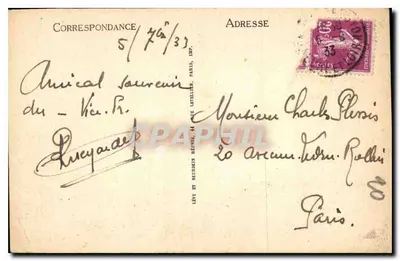 CORRESPONDANCE
ADRESSE
5/7bre/33
Amical souvenir
du
LÉVY ET NEURDEIN RÉUNIS, 44 RUE LETELLIER, PARIS, IMP.
Monsieur Charles Plessis
20 avenue Ledru-Rollin
Paris.
20
20c
33
CPAPHIL